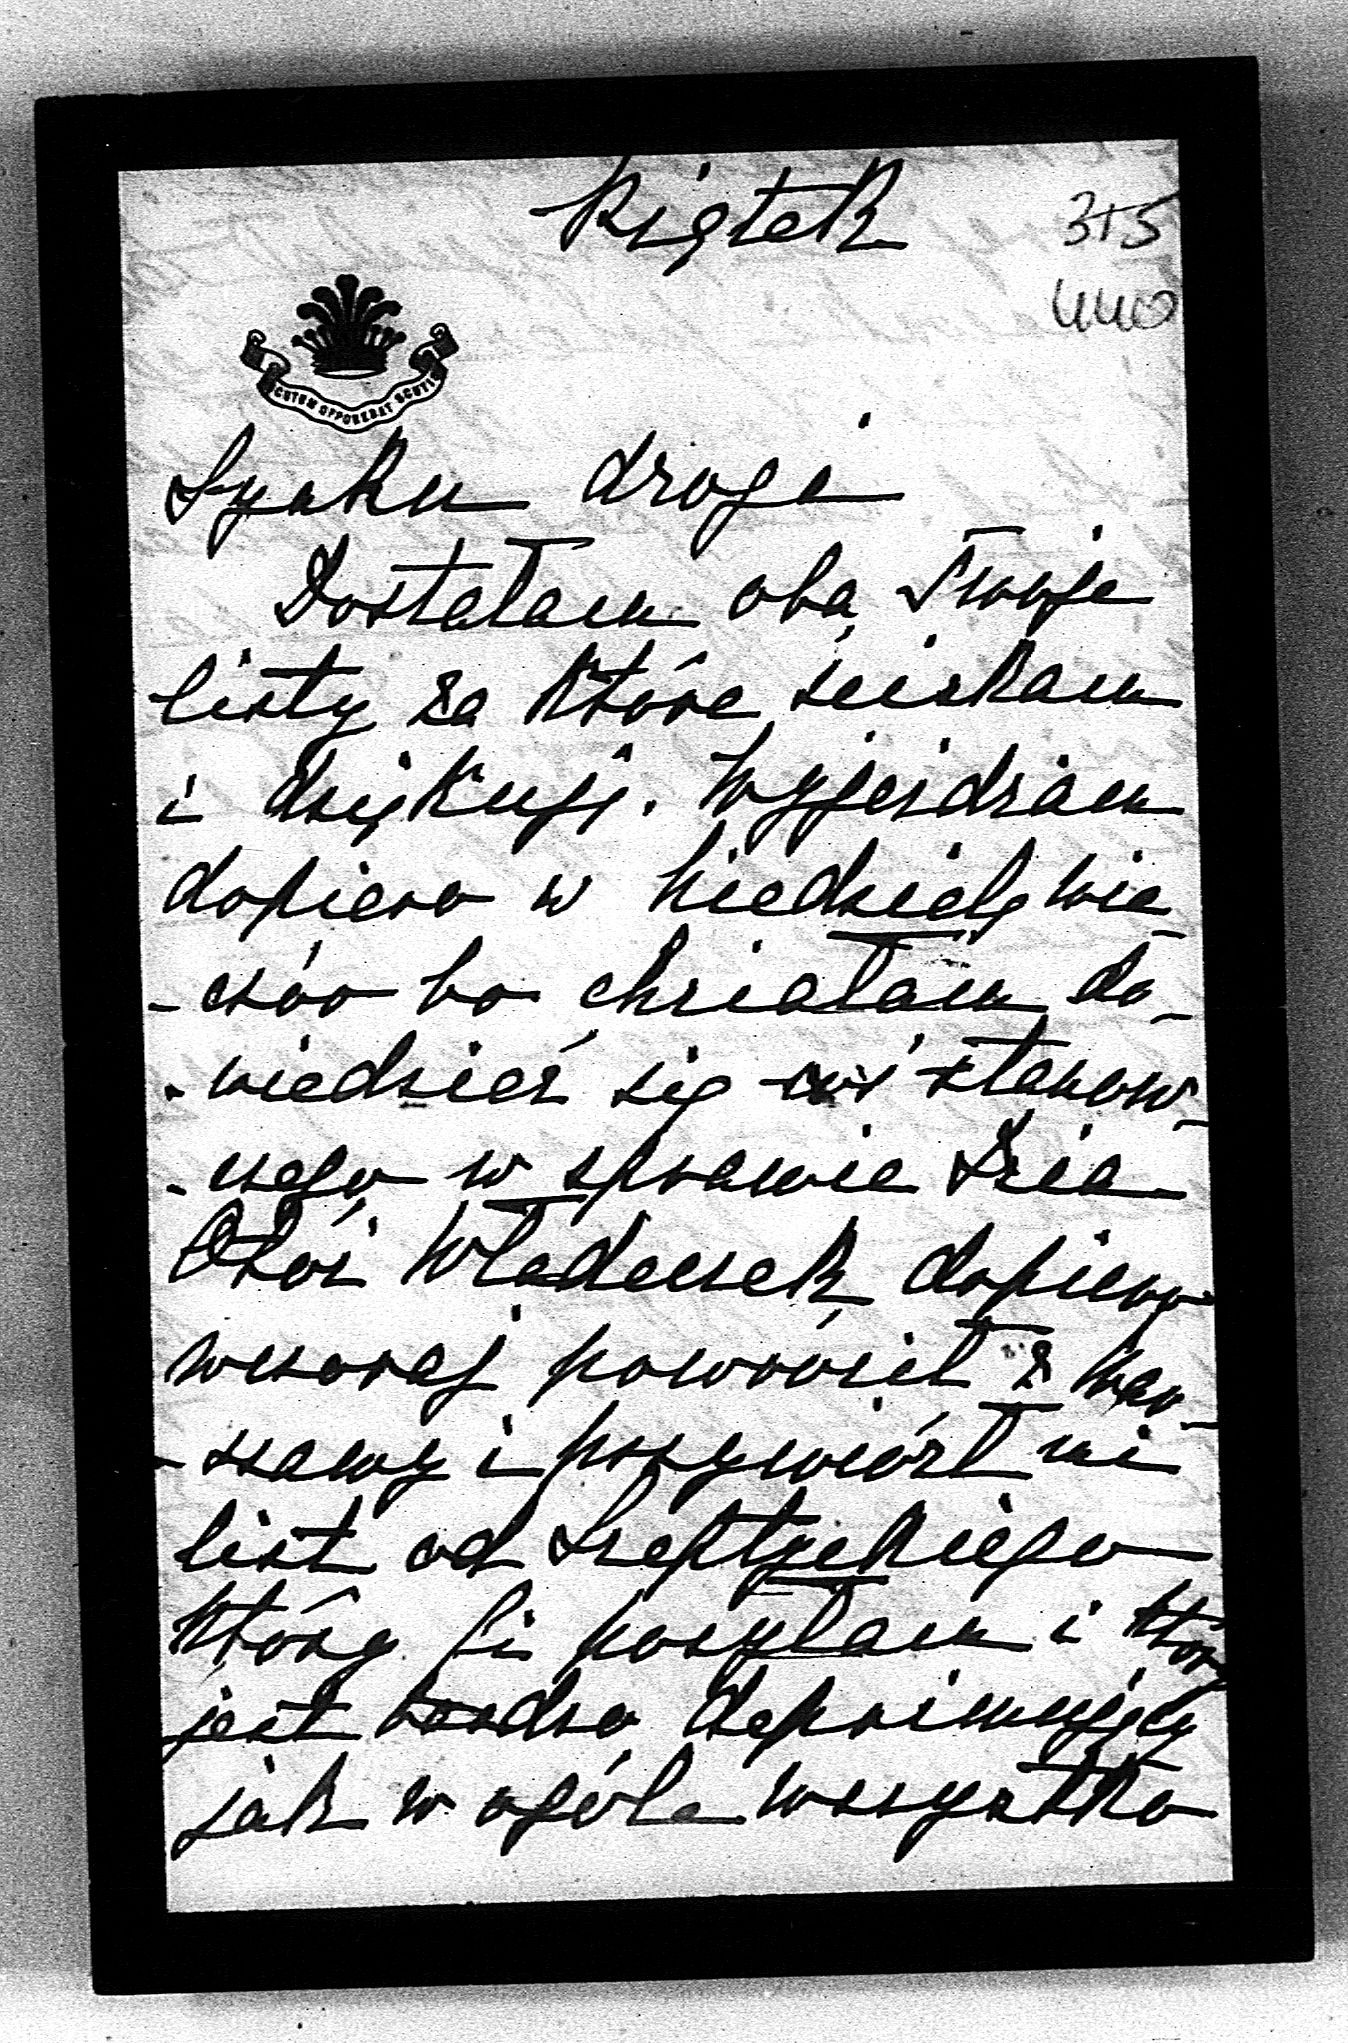 Piątek
315
440
SCUTUM OPPONEBAT SCUTIS
Synku drogi
Dostałam oba Twoje
listy za które ściskam
i dziękuję. Wyjeżdżam
dopiero w Niedzielę wie-
-czór bo chciałam do-
-wiedzieć się coś stanow-
-czego w sprawie
Otóż Władeczek dopiero
wczoraj powrócił z War-
-szawy i przywiózł mi
list od Szeptyckiego
który Ci posyłam i który
jest bardzo deprimujący
jak w ogóle wszystko